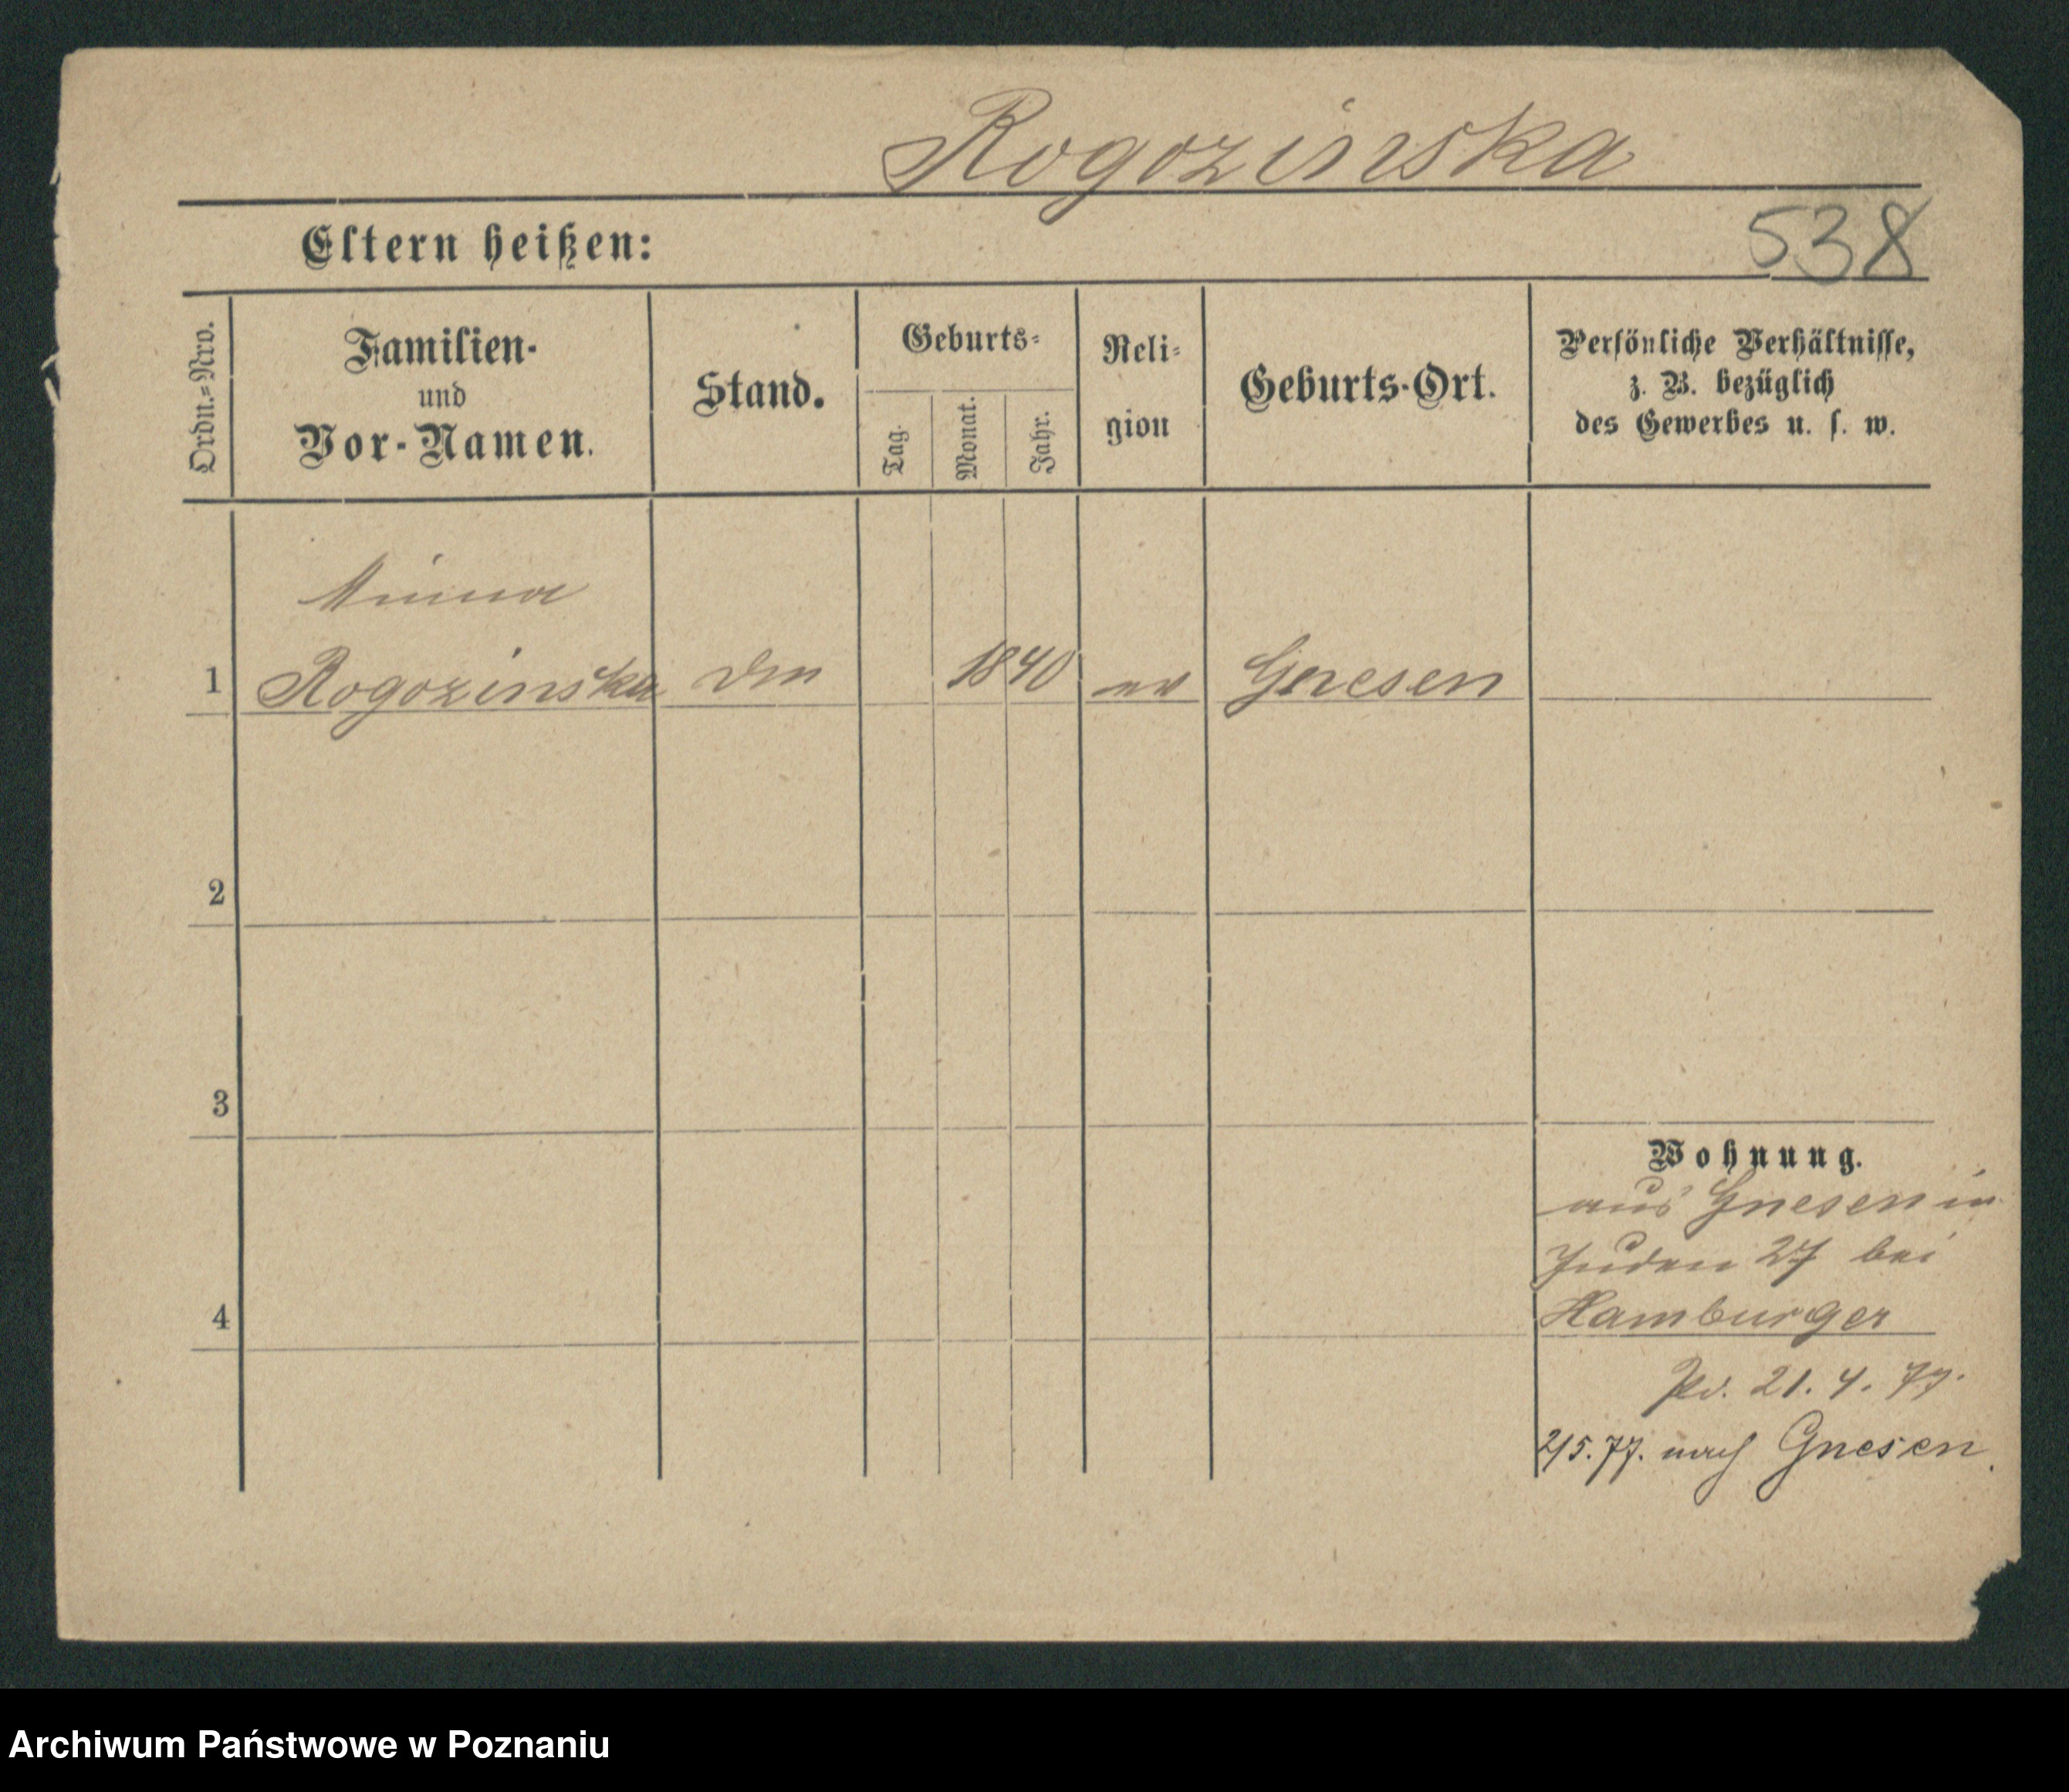 Rogozinska
Eltern heißen:
538
Ordn.=Nro.
Familien-
und
Vor-Namen.
Stand.
Geburts=
Tag.
Monat.
Jahr.
Reli=
gion
Geburts-Ort.
Persönliche Verhältnisse,
z. B. bezüglich
des Gewerbes u. s. w.
Minna
1 Rogozinska 1840 Gnesen
2
3
Wohnung.
aus Gnesen in
Juden 27 bei
4 Hamburger
21. 4. 77.
2/5. 77. nach Gnesen.
Archiwum Państwowe w Poznaniu